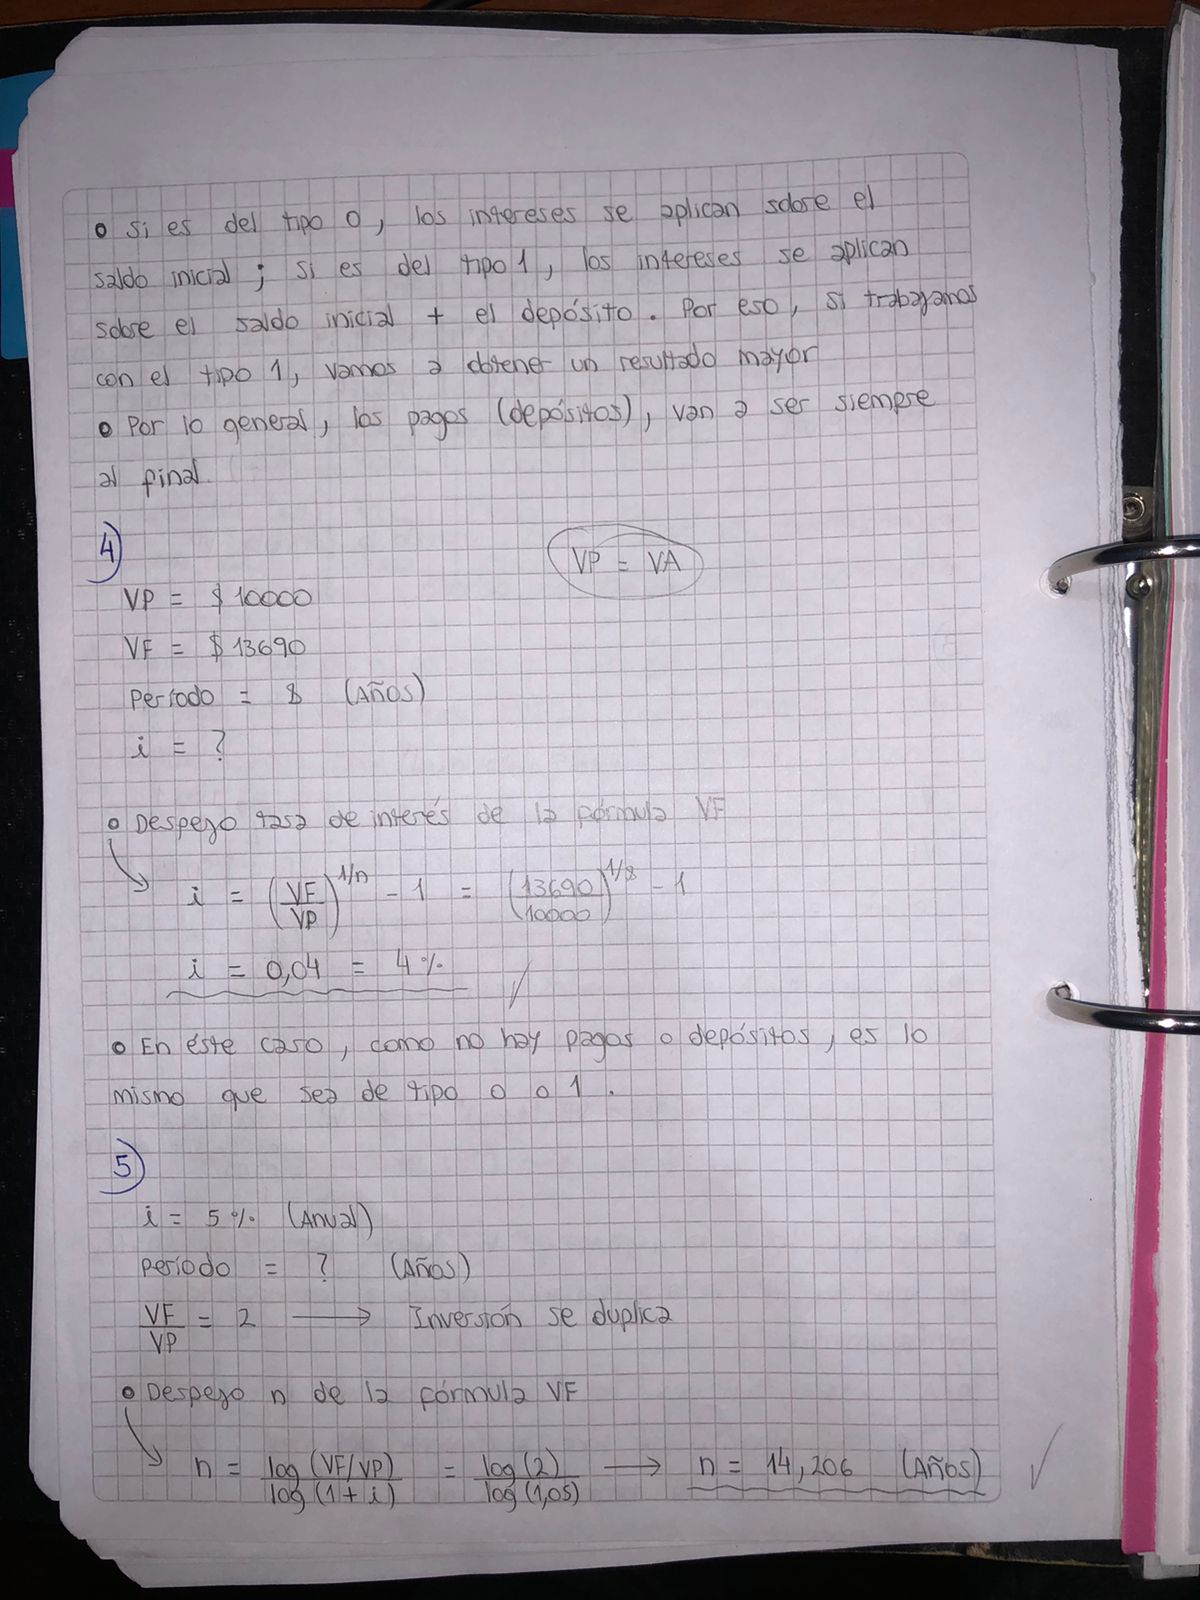 • Si es del tipo 0, los intereses se aplican sobre el
saldo inicial; si es del tipo 1, los intereses se aplican
sobre el saldo inicial + el depósito. Por eso, si trabajamos
con el tipo 1, vamos a obtener un resultado mayor
• Por lo general, los pagos (depósitos), van a ser siempre
al final.
4)
VP = VA
VP = $10000
VF = $13690
Período = 8 (Años)
i = ?
• Despejo tasa de interés de la fórmula VF
i = (VF/VP)^1/n - 1 = (13690/10000)^1/8 - 1
i = 0,04 = 4%
• En éste caso, como no hay pagos o depósitos, es lo
mismo que sea de tipo 0 o 1.
5)
i = 5% (Anual)
Período = ? (Años)
VF/VP = 2 → Inversión se duplica
• Despejo n de la fórmula VF
n = log(VF/VP)/log(1+i) = log(2)/log(1,05) → n = 14,206 (Años)